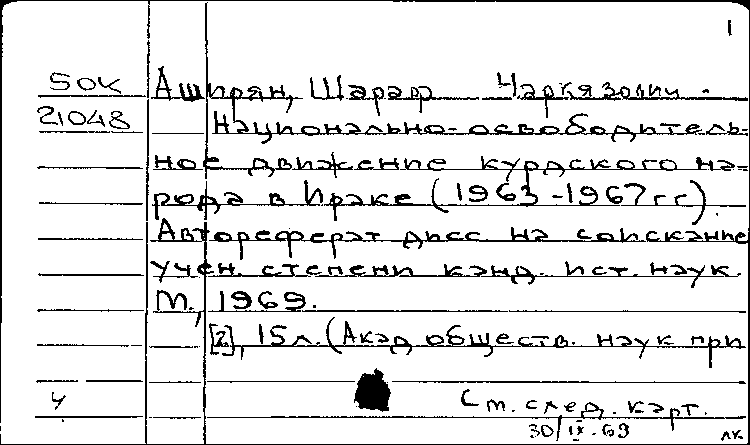 1
50К Аширян, Шараф Чаркязович.
21048 Национально-освободитель-
ное движение курдского на-
рода в Ираке (1963-1967гг).
Автореферат дисс. на соискание
учен. степени канд. ист. наук.
М., 1969.
[2], 15л. (Акад. обществ. наук при
Ч См. след. карт.
30/IX.69 лк